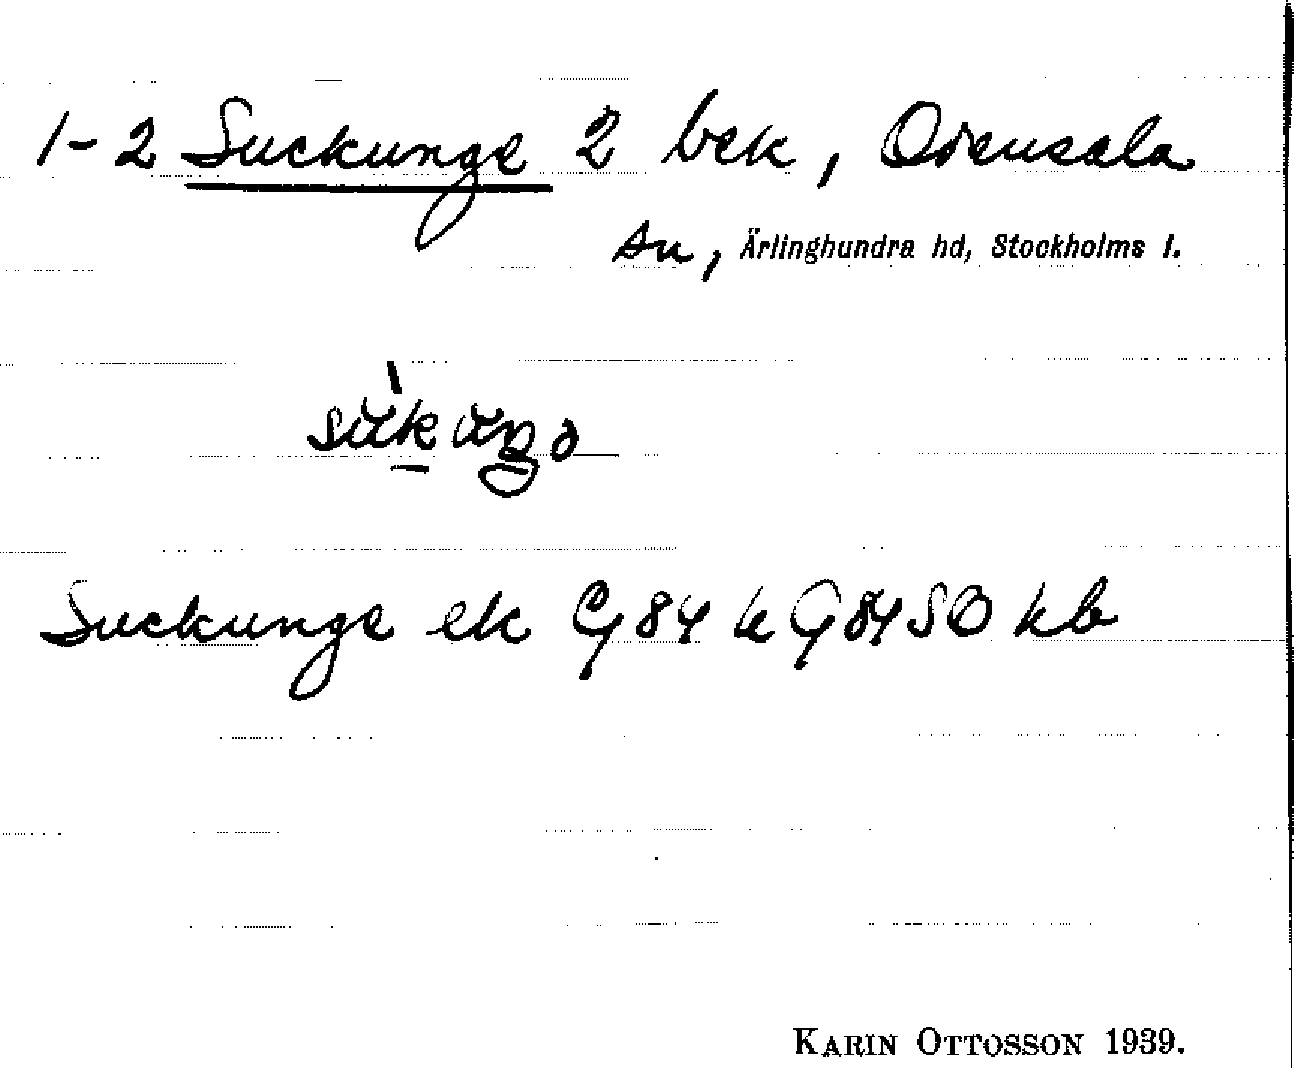 1-2 Suckunge 2 bek, Odensala
sn, Ärlinghundra hd, Stockholms l.
Suckunge ek G 84 k G 84 SO kb
KARIN OTTOSSON 1939.